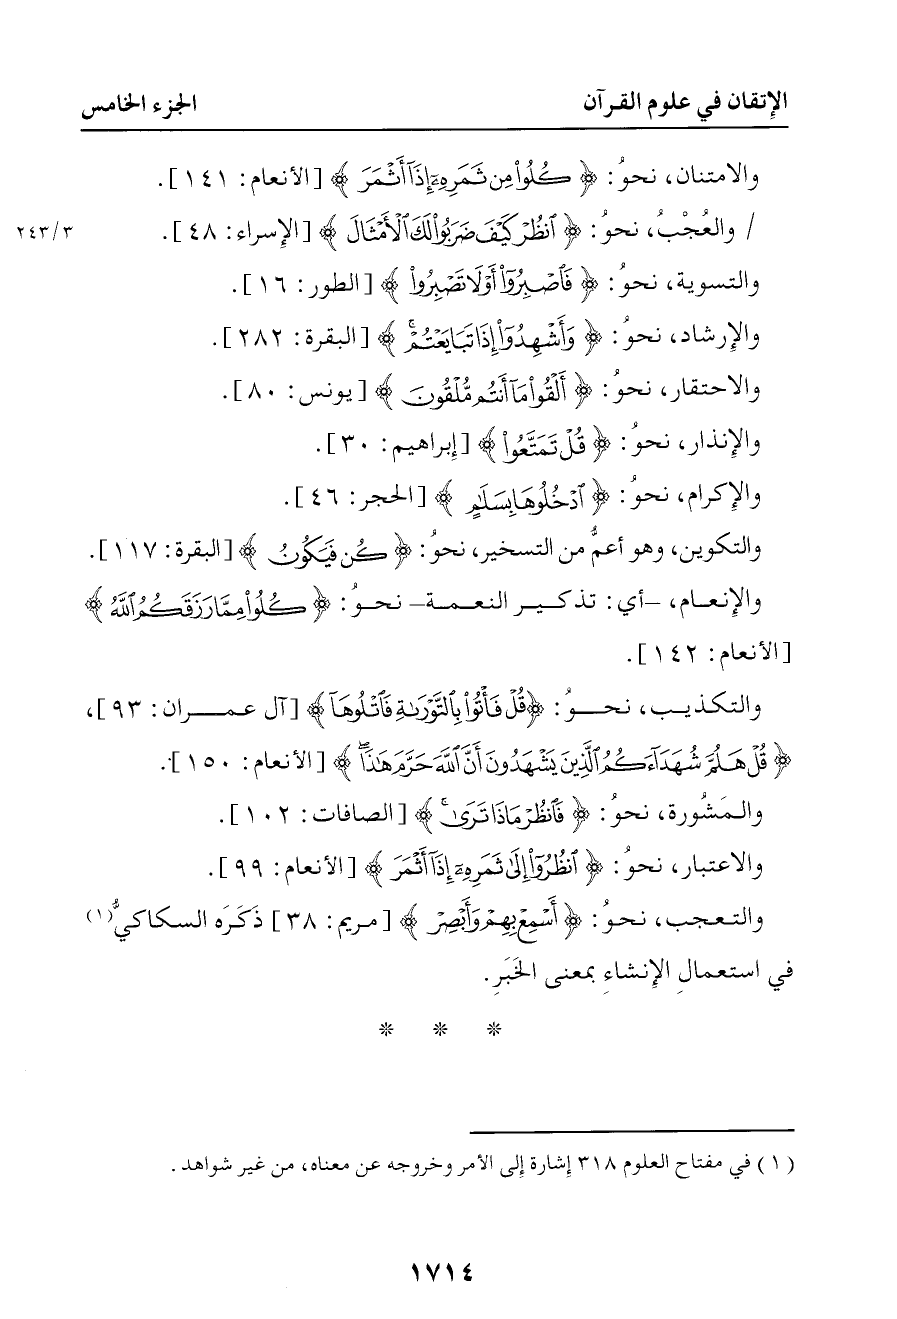 الإتقان في علوم القرآن الجزء الخامس
والامتنان، نحوُ: ﴿ كُلُوا۟ مِن ثَمَرِهِۦٓ إِذَآ أَثْمَرَ ﴾ [الأنعام: ١٤١].
/ والعُجْبُ، نحوُ: ﴿ ٱنظُرْ كَيْفَ ضَرَبُوا۟ لَكَ ٱلْأَمْثَالَ ﴾ [الإسراء: ٤٨]. ٢٤٣/٣
والتسوية، نحوُ: ﴿ فَٱصْبِرُوٓا۟ أَوْ لَا تَصْبِرُوا۟ ﴾ [الطور: ١٦].
والإرشاد، نحوُ: ﴿ وَأَشْهِدُوٓا۟ إِذَا تَبَايَعْتُمْ ۚ ﴾ [البقرة: ٢٨٢].
والاحتقار، نحوُ: ﴿ أَلْقُوا۟ مَآ أَنتُم مُّلْقُونَ ﴾ [يونس: ٨٠].
والإنذار، نحوُ: ﴿ قُلْ تَمَتَّعُوا۟ ﴾ [إبراهيم: ٣٠].
والإكرام، نحوُ: ﴿ ٱدْخُلُوهَا بِسَلَٰمٍ ﴾ [الحجر: ٤٦].
والتكوين، وهو أعمُّ من التسخير، نحوُ: ﴿ كُن فَيَكُونُ ﴾ [البقرة: ١١٧].
والإنعام، –أي: تذكير النعمة– نحوُ: ﴿ كُلُوا۟ مِمَّا رَزَقَكُمُ ٱللَّهُ ﴾
[الأنعام: ١٤٢].
والتكذيب، نحوُ: ﴿قُلْ فَأْتُوا۟ بِٱلتَّوْرَىٰةِ فَٱتْلُوهَآ ﴾ [آل عمران: ٩٣]،
﴿ قُلْ هَلُمَّ شُهَدَآءَكُمُ ٱلَّذِينَ يَشْهَدُونَ أَنَّ ٱللَّهَ حَرَّمَ هَٰذَا ۖ ﴾ [الأنعام: ١٥٠].
والمَشُورة، نحوُ: ﴿ فَٱنظُرْ مَاذَا تَرَىٰ ۚ ﴾ [الصافات: ١٠٢].
والاعتبار، نحوُ: ﴿ ٱنظُرُوٓا۟ إِلَىٰ ثَمَرِهِۦٓ إِذَآ أَثْمَرَ ﴾ [الأنعام: ٩٩].
والتعجب، نحوُ: ﴿ أَسْمِعْ بِهِمْ وَأَبْصِرْ ﴾ [مريم: ٣٨] ذَكَرَه السكاكيُّ(١)
في استعمالِ الإنشاءِ بمعنى الخَبَرِ.
* * *
(١) في مفتاح العلوم ٣١٨ إشارة إلى الأمر وخروجه عن معناه، من غير شواهد.
١٧١٤